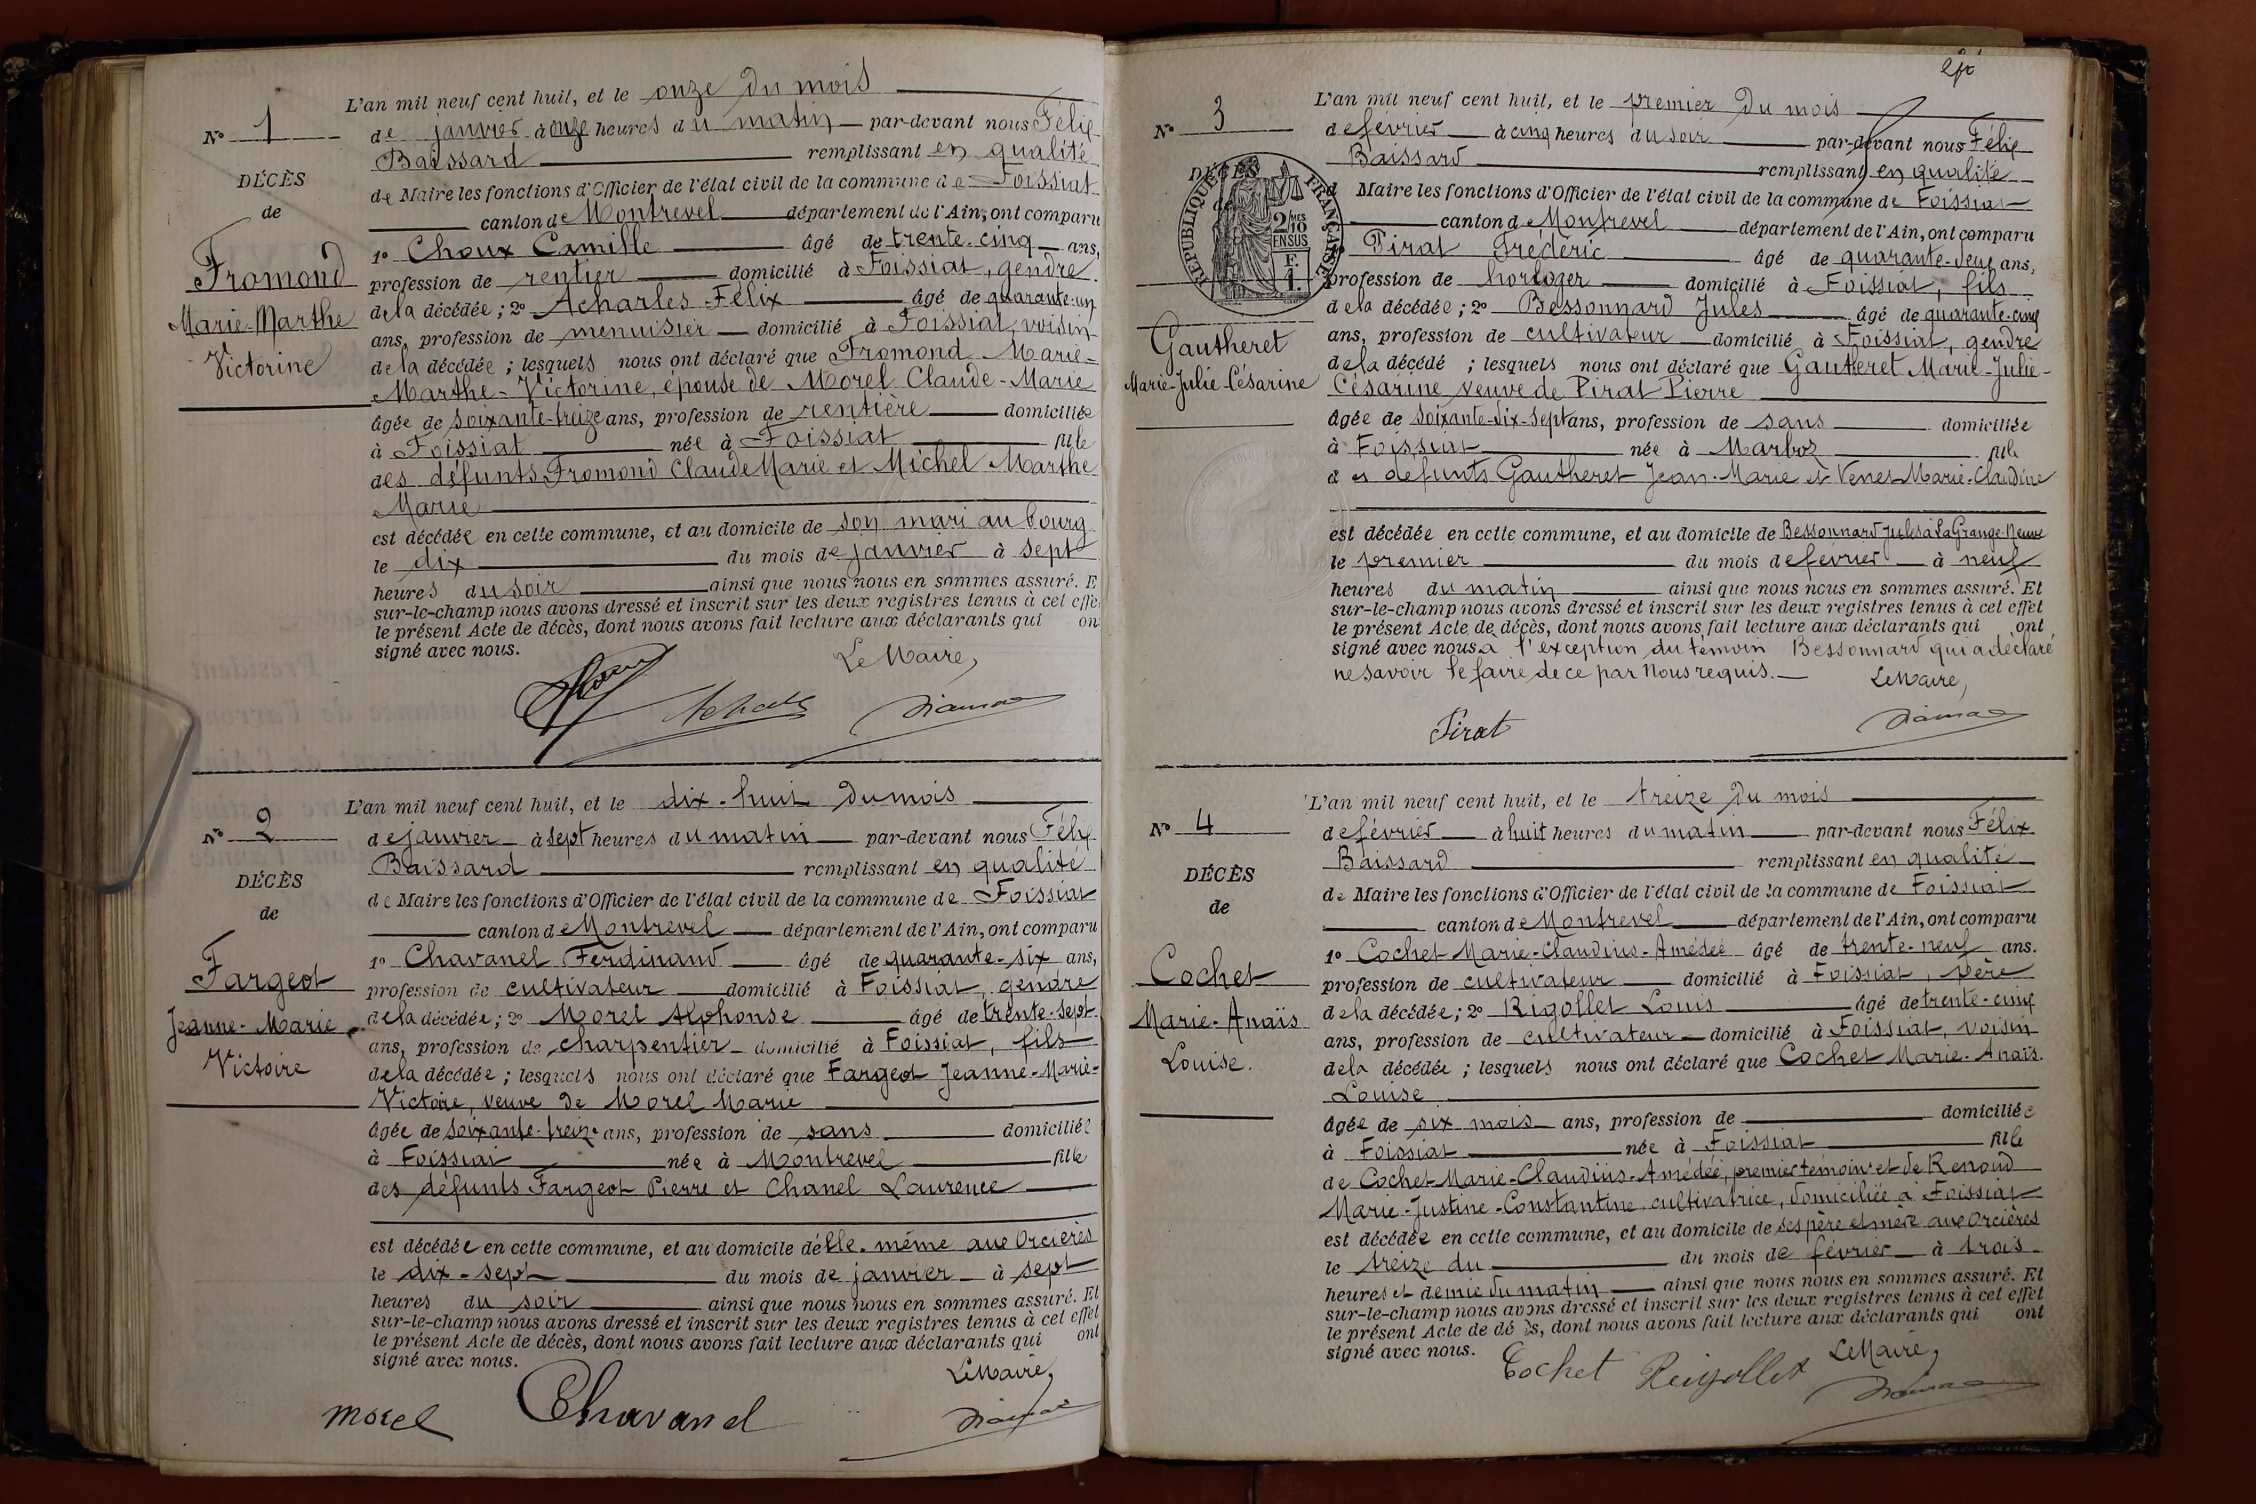 L'an mil neuf cent huit, et le onze du mois
N° 1
de janvier à onze heures du matin par-devant nous Félix
Baissard remplissant en qualité
DÉCÈS
de Maire les fonctions d'Officier de l'état civil de la commune de Foissiat
de
canton de Montrevel département de l'Ain, ont comparu
Fromond
1° Choux Camille âgé de trente-cinq ans,
profession de rentier domicilié à Foissiat, gendre
Marie-Marthe
de la décédée ; 2° Acharles Félix âgé de quarante-un
ans, profession de menuisier domicilié à Foissiat, voisin
Victorine
de la décédée ; lesquels nous ont déclaré que Fromond Marie-
Marthe-Victorine, épouse de Morel Claude-Marie
âgée de soixante-treize ans, profession de rentière domiciliée
à Foissiat née à Foissiat fille
des défunts Fromond Claude Marie et Michel Marthe
Marie
est décédée en cette commune, et au domicile de son mari au bourg
le dix du mois de janvier à sept
heures du soir ainsi que nous nous en sommes assuré. E
sur-le-champ nous avons dressé et inscrit sur les deux registres tenus à cet effe
le présent Acte de décès, dont nous avons fait lecture aux déclarants qui on
signé avec nous.
Le Maire,
L'an mil neuf cent huit, et le dix-huit du mois
N° 2
de janvier à sept heures du matin par-devant nous Félix
Baissard remplissant en qualité
DÉCÈS
de Maire les fonctions d'Officier de l'état civil de la commune de Foissiat
de
canton de Montrevel département de l'Ain, ont comparu
Fargeot
1° Chavanel Ferdinand âgé de quarante-six ans,
profession de cultivateur domicilié à Foissiat, gendre
Jeanne-Marie
de la décédée ; 2° Morel Alphonse âgé de trente-sept
ans, profession de charpentier domicilié à Foissiat, fils
Victoire
de la décédée ; lesquels nous ont déclaré que Fargeot Jeanne-Marie-
Victoire, veuve de Morel Marie
âgée de soixante-treize ans, profession de sans domiciliée
à Foissiat née à Montrevel fille
des défunts Fargeot Pierre et Chanel Laurence
est décédée en cette commune, et au domicile d'elle-même aux Orcières
le dix-sept du mois de janvier à sept
heures du soir ainsi que nous nous en sommes assuré. Et
sur-le-champ nous avons dressé et inscrit sur les deux registres tenus à cet effet
le présent Acte de décès, dont nous avons fait lecture aux déclarants qui ont
signé avec nous.
Le Maire,
Morel Chavanel
L'an mil neuf cent huit, et le premier du mois
N° 3
de février à cinq heures du soir par-devant nous Félix
Baissard remplissant en qualité
DÉCÈS
REPUBLIQUE FRANÇAISE
2/10 EN SUS
F. 1.
d Maire les fonctions d'Officier de l'état civil de la commune de Foissiat
canton de Montrevel département de l'Ain, ont comparu
Pirat Frédéric âgé de quarante-deux ans,
profession de horloger domicilié à Foissiat, fils
de la décédée ; 2° Bessonnard Jules âgé de quarante-cinq
Gautheret
ans, profession de cultivateur domicilié à Foissiat, gendre
de la décédé ; lesquels nous ont déclaré que Gautheret Marie-Julie-
Marie-Julie-Césarine
Césarine veuve de Pirat Pierre
âgée de soixante-dix-sept ans, profession de sans domiciliée
à Foissiat née à Marboz fille
des défunts Gautheret Jean-Marie et Venet Marie-Claudine
est décédée en cette commune, et au domicile de Bessonnard Jules à La Grange-Neuve
le premier du mois de février à neuf
heures du matin ainsi que nous nous en sommes assuré. Et
sur-le-champ nous avons dressé et inscrit sur les deux registres tenus à cet effet
le présent Acte de décès, dont nous avons fait lecture aux déclarants qui ont
signé avec nous à l'exception du témoin Bessonnard qui a déclaré
ne savoir le faire de ce par nous requis.
Le Maire,
Pirat
L'an mil neuf cent huit, et le treize du mois
N° 4
de février à huit heures du matin par-devant nous Félix
Baissard remplissant en qualité
DÉCÈS
de Maire les fonctions d'Officier de l'état civil de la commune de Foissiat
de
canton de Montrevel département de l'Ain, ont comparu
1° Cochet Marie-Claudius-Amédée âgé de trente-neuf ans.
Cochet
profession de cultivateur domicilié à Foissiat, père
de la décédée ; 2° Rigollet Louis âgé de trente-cinq
Marie-Anaïs
ans, profession de cultivateur domicilié à Foissiat, voisin
Louise.
de la décédée ; lesquels nous ont déclaré que Cochet Marie-Anaïs
Louise
âgée de six mois ans, profession de domiciliée
à Foissiat née à Foissiat fille
de Cochet Marie-Claudius-Amédée, premier témoin et de Renoud
Marie-Justine-Constantine cultivatrice, domiciliée à Foissiat
est décédée en cette commune, et au domicile de ses père et mère aux Orcières
le treize du du mois de février à trois
heures et demie du matin ainsi que nous nous en sommes assuré. Et
sur-le-champ nous avons dressé et inscrit sur les deux registres tenus à cet effet
le présent Acte de décès, dont nous avons fait lecture aux déclarants qui ont
signé avec nous.
Le Maire,
Cochet Reigollet